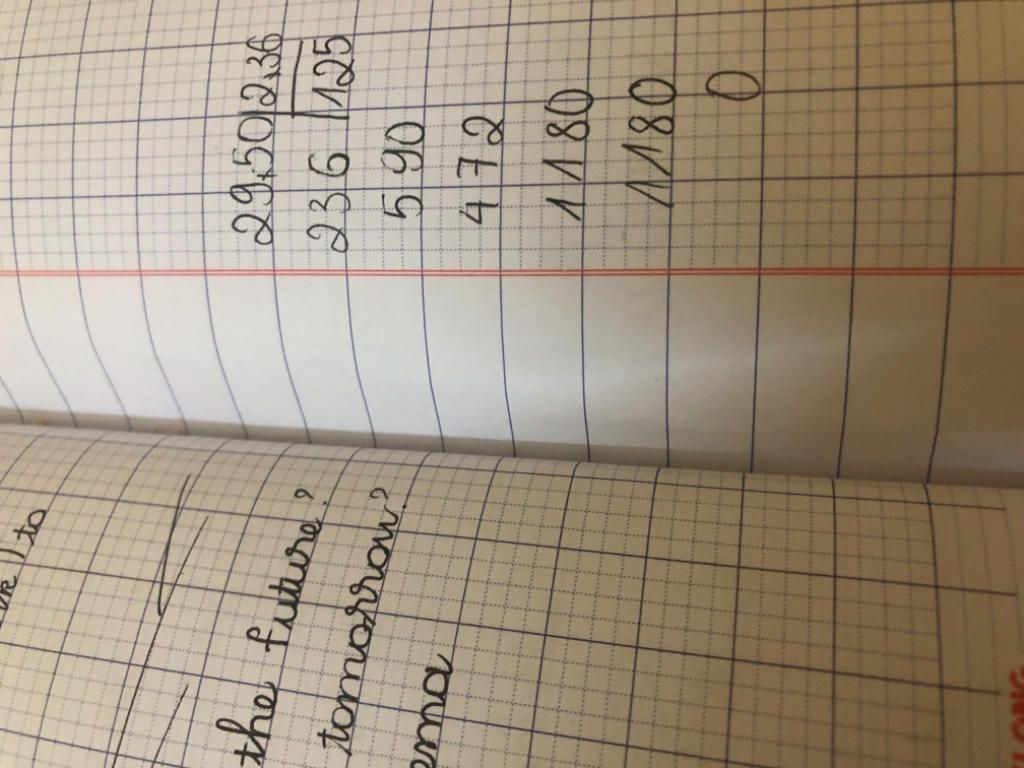 29,50 2,36
236 125
590
472
1180
1180
0
to
the future?
tomorrow?